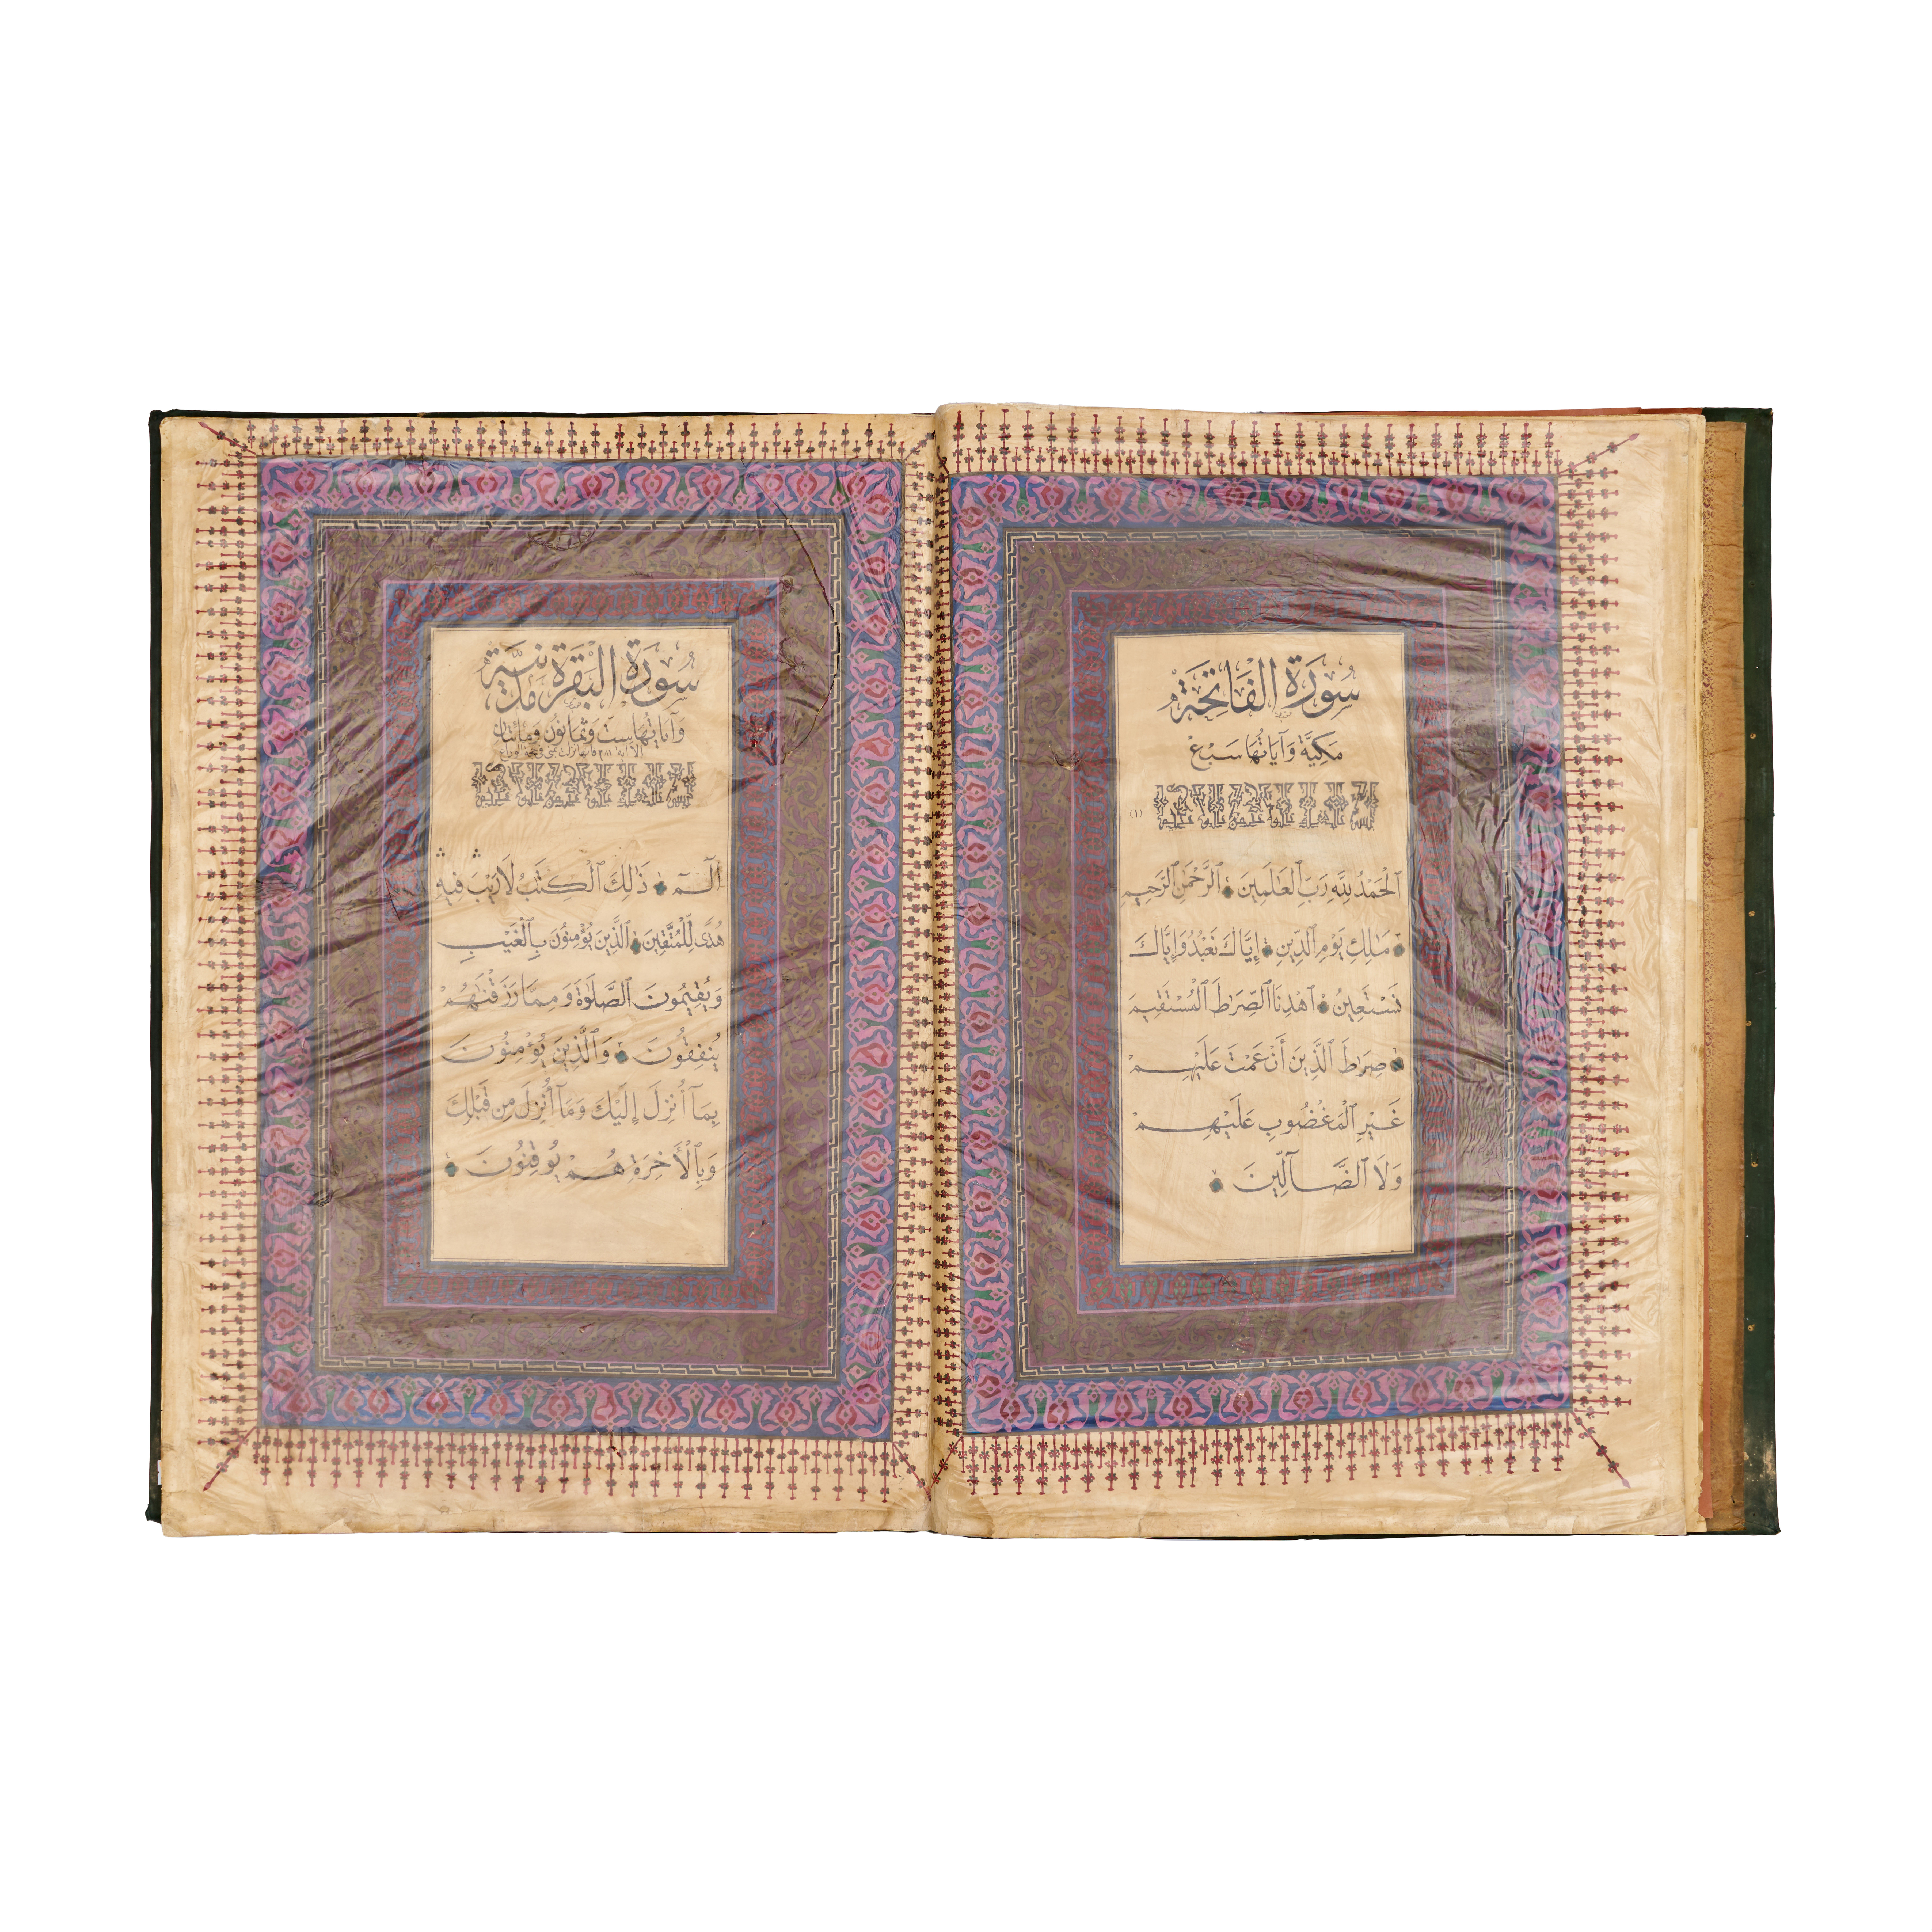 سُورَةُ الفَاتِحَةِ
مَكِيَّة وَآيَاتُهَا سَبْعٌ
(١)
ٱلْحَمْدُ لِلَّهِ رَبِّ ٱلْعَٰلَمِينَ ۞ ٱلرَّحْمَٰنِ ٱلرَّحِيمِ
۞ مَٰلِكِ يَوْمِ ٱلدِّينِ ۞ إِيَّاكَ نَعْبُدُ وَإِيَّاكَ
نَسْتَعِينُ ۞ ٱهْدِنَا ٱلصِّرَٰطَ ٱلْمُسْتَقِيمَ
۞ صِرَٰطَ ٱلَّذِينَ أَنْعَمْتَ عَلَيْهِمْ
غَيْرِ ٱلْمَغْضُوبِ عَلَيْهِمْ
وَلَا ٱلضَّآلِّينَ ۞
سُورَةُ البَقَرَةِ مَدَنِيَّة
وَآيَاتُهَا سِتٌّ وَثَمَانُونَ وَمِائَتَانِ
الٓمٓ ۞ ذَٰلِكَ ٱلْكِتَٰبُ لَا رَيْبَ فِيهِ
هُدًى لِّلْمُتَّقِينَ ۞ ٱلَّذِينَ يُؤْمِنُونَ بِٱلْغَيْبِ
وَيُقِيمُونَ ٱلصَّلَوٰةَ وَمِمَّا رَزَقْنَٰهُمْ
يُنفِقُونَ ۞ وَٱلَّذِينَ يُؤْمِنُونَ
بِمَآ أُنزِلَ إِلَيْكَ وَمَآ أُنزِلَ مِن قَبْلِكَ
وَبِٱلْأَخِرَةِ هُمْ يُوقِنُونَ ۞